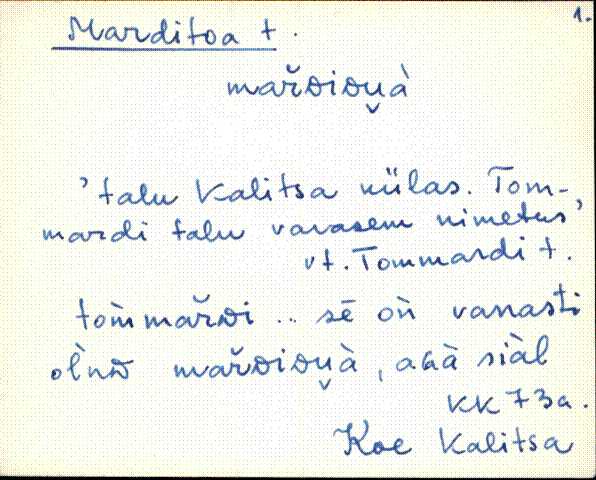 1.
Marditoa t.
mař̆ᴅioᴅu̯à
’talu Kalitsa külas. Tom-
mardi talu varasem nimetus’
vt. Tommardi t.
tom̀mař̆ᴅi .. sē oǹ vanasti
ol̀nᴅ mař̆ᴅiᴅu̯à, aGà siàl
KK 73a.
Koe Kalitsa